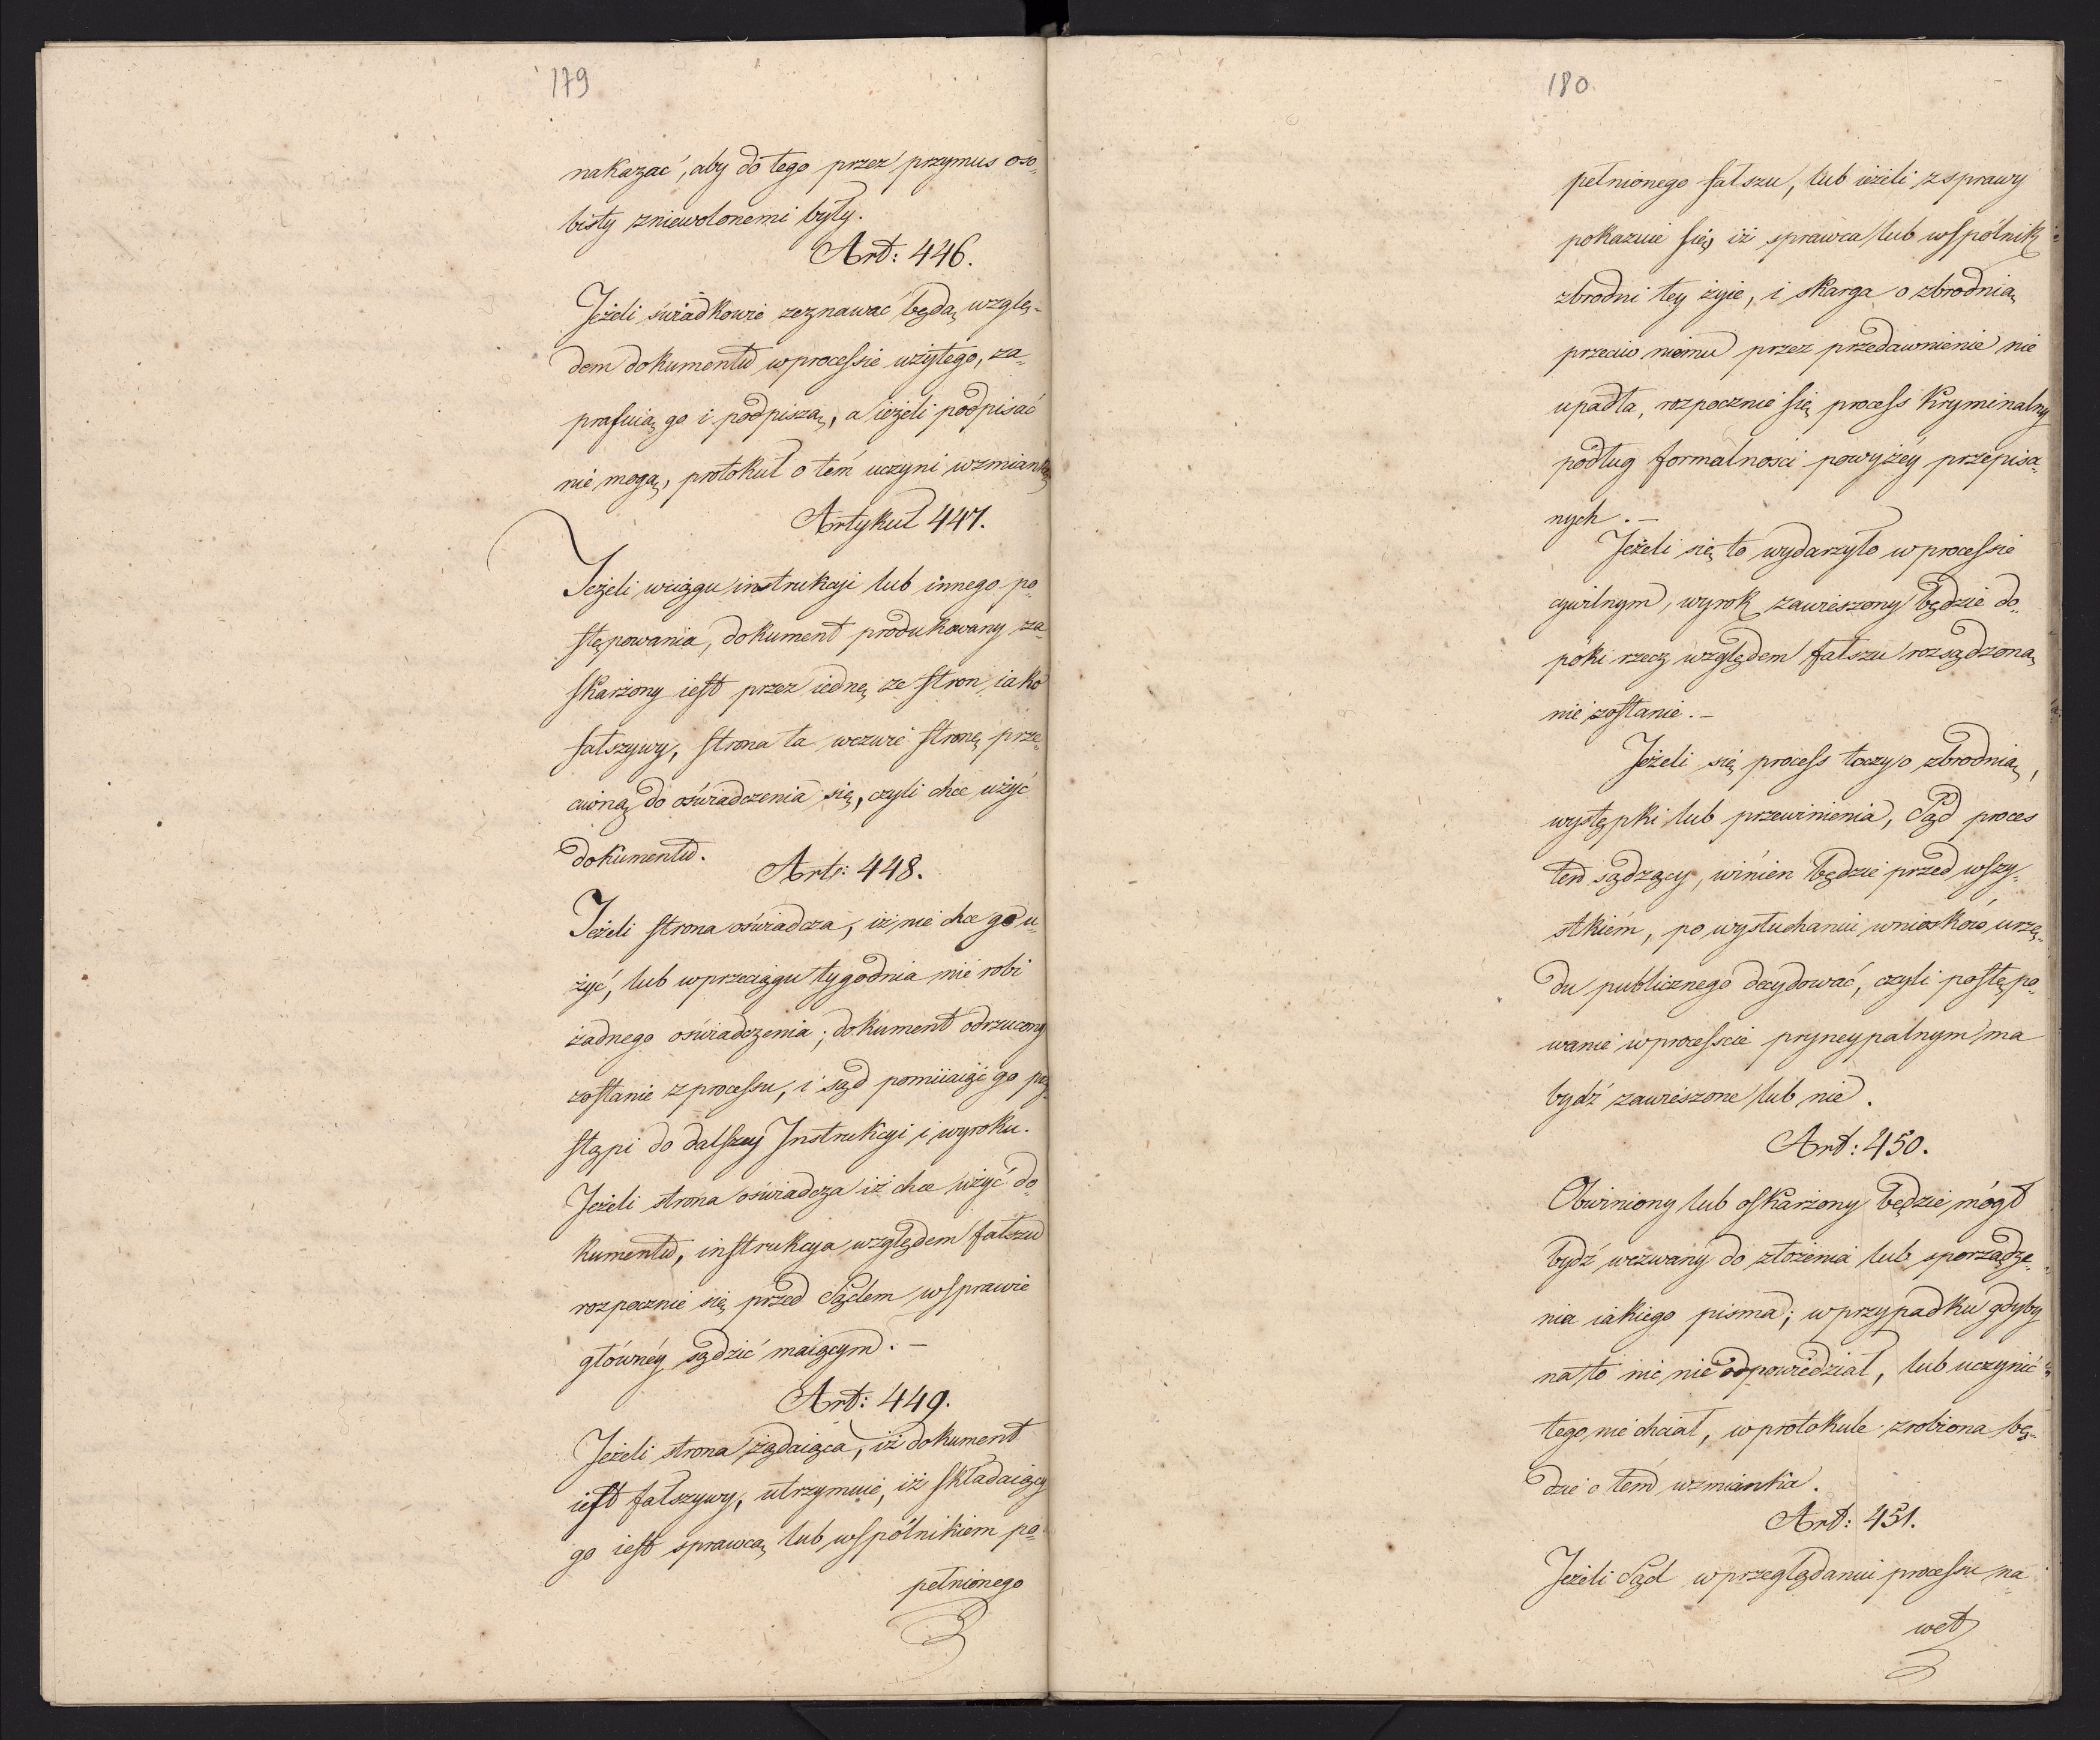 179
nakazać, aby do tego przez przymus oso„
bisty zniewolonemi były.
Art: 446.
Jeżeli świadkowie zeznawać będą, wzglę„
dem dokumentu w processie użytego, za„
prafuią go i podpiszą, a ieżeli podpisać
nie mogą, protokuł o tém uczyni wzmiankę
Artykuł 447.
Jeżeli wciągu instrukcyi lub innego po„
stępowania, dokument produkowany za„
skarżony iest przez iednę ze stron iako
fałszywy, strona ta wezwie stronę prze„
ciwną do oświadczenia się, czyli chce użyć
dokumentu.
Art: 448.
Jeżeli strona oświadcza, iż nie chce go u„
żyć, lub w przeciągu tygodnia nie robi
żadnego oświadczenia; dokument odrzucony
zostanie z processu, i sąd pomiiaiąc go przy„
stąpi do dalszey Instrukcyi i wyroku.
Jeżeli strona oświadcza iż chce użyć do„
kumentu, instrukcya względem fałszu
rozpocznie się przed Sądem w sprawie
głównéy sądzić maiącym. —
Art: 449.
Jeżeli strona żądaiąca, iż dokument
iest fałszywy, utrzymuie, iż składaiący
go iest sprawcą lub wspólnikiem po„
pełnionego
180
pełnionego fałszu, lub ieżeli z sprawy
pokazuie się, iż sprawca lub wspólnik
zbrodni tey żyie, i skarga o zbrodnią
przeciw niemu przez przedawnienie nie
upadła, rozpocznie się process Kryminalny
podług formalnosci powyżéy przepisa„
nych. —
Jeżeli się to wydarzyło w processie
cywilnym, wyrok zawieszony będzie do„
póki rzecz względem fałszu rozsądzoną
nie zostanie. —
Jeżeli się process toczy o zbrodnią,
występki lub przewinienia, Sąd proces
ten sądzący, winien będzie przed wszy„
stkiém, po wysłuchaniu wniosków urzę„
du publicznego decydować, czyli postępo„
wanie w processie pryncypalnym ma
bydź zawieszone lub nie.
Art: 450.
Obwiniony lub oskarżony będzie mógł
bydź wezwany do złożenia lub sporządze„
nia iakiego pisma; w przypadku gdyby
na to nic nie odpowiedział, lub uczynić
tego nie chciał, w protokule zrobiona bę„
dzie o tém wzmianka.
Art: 451.
Jeżeli Sąd w przeglądaniu processu na„
wet